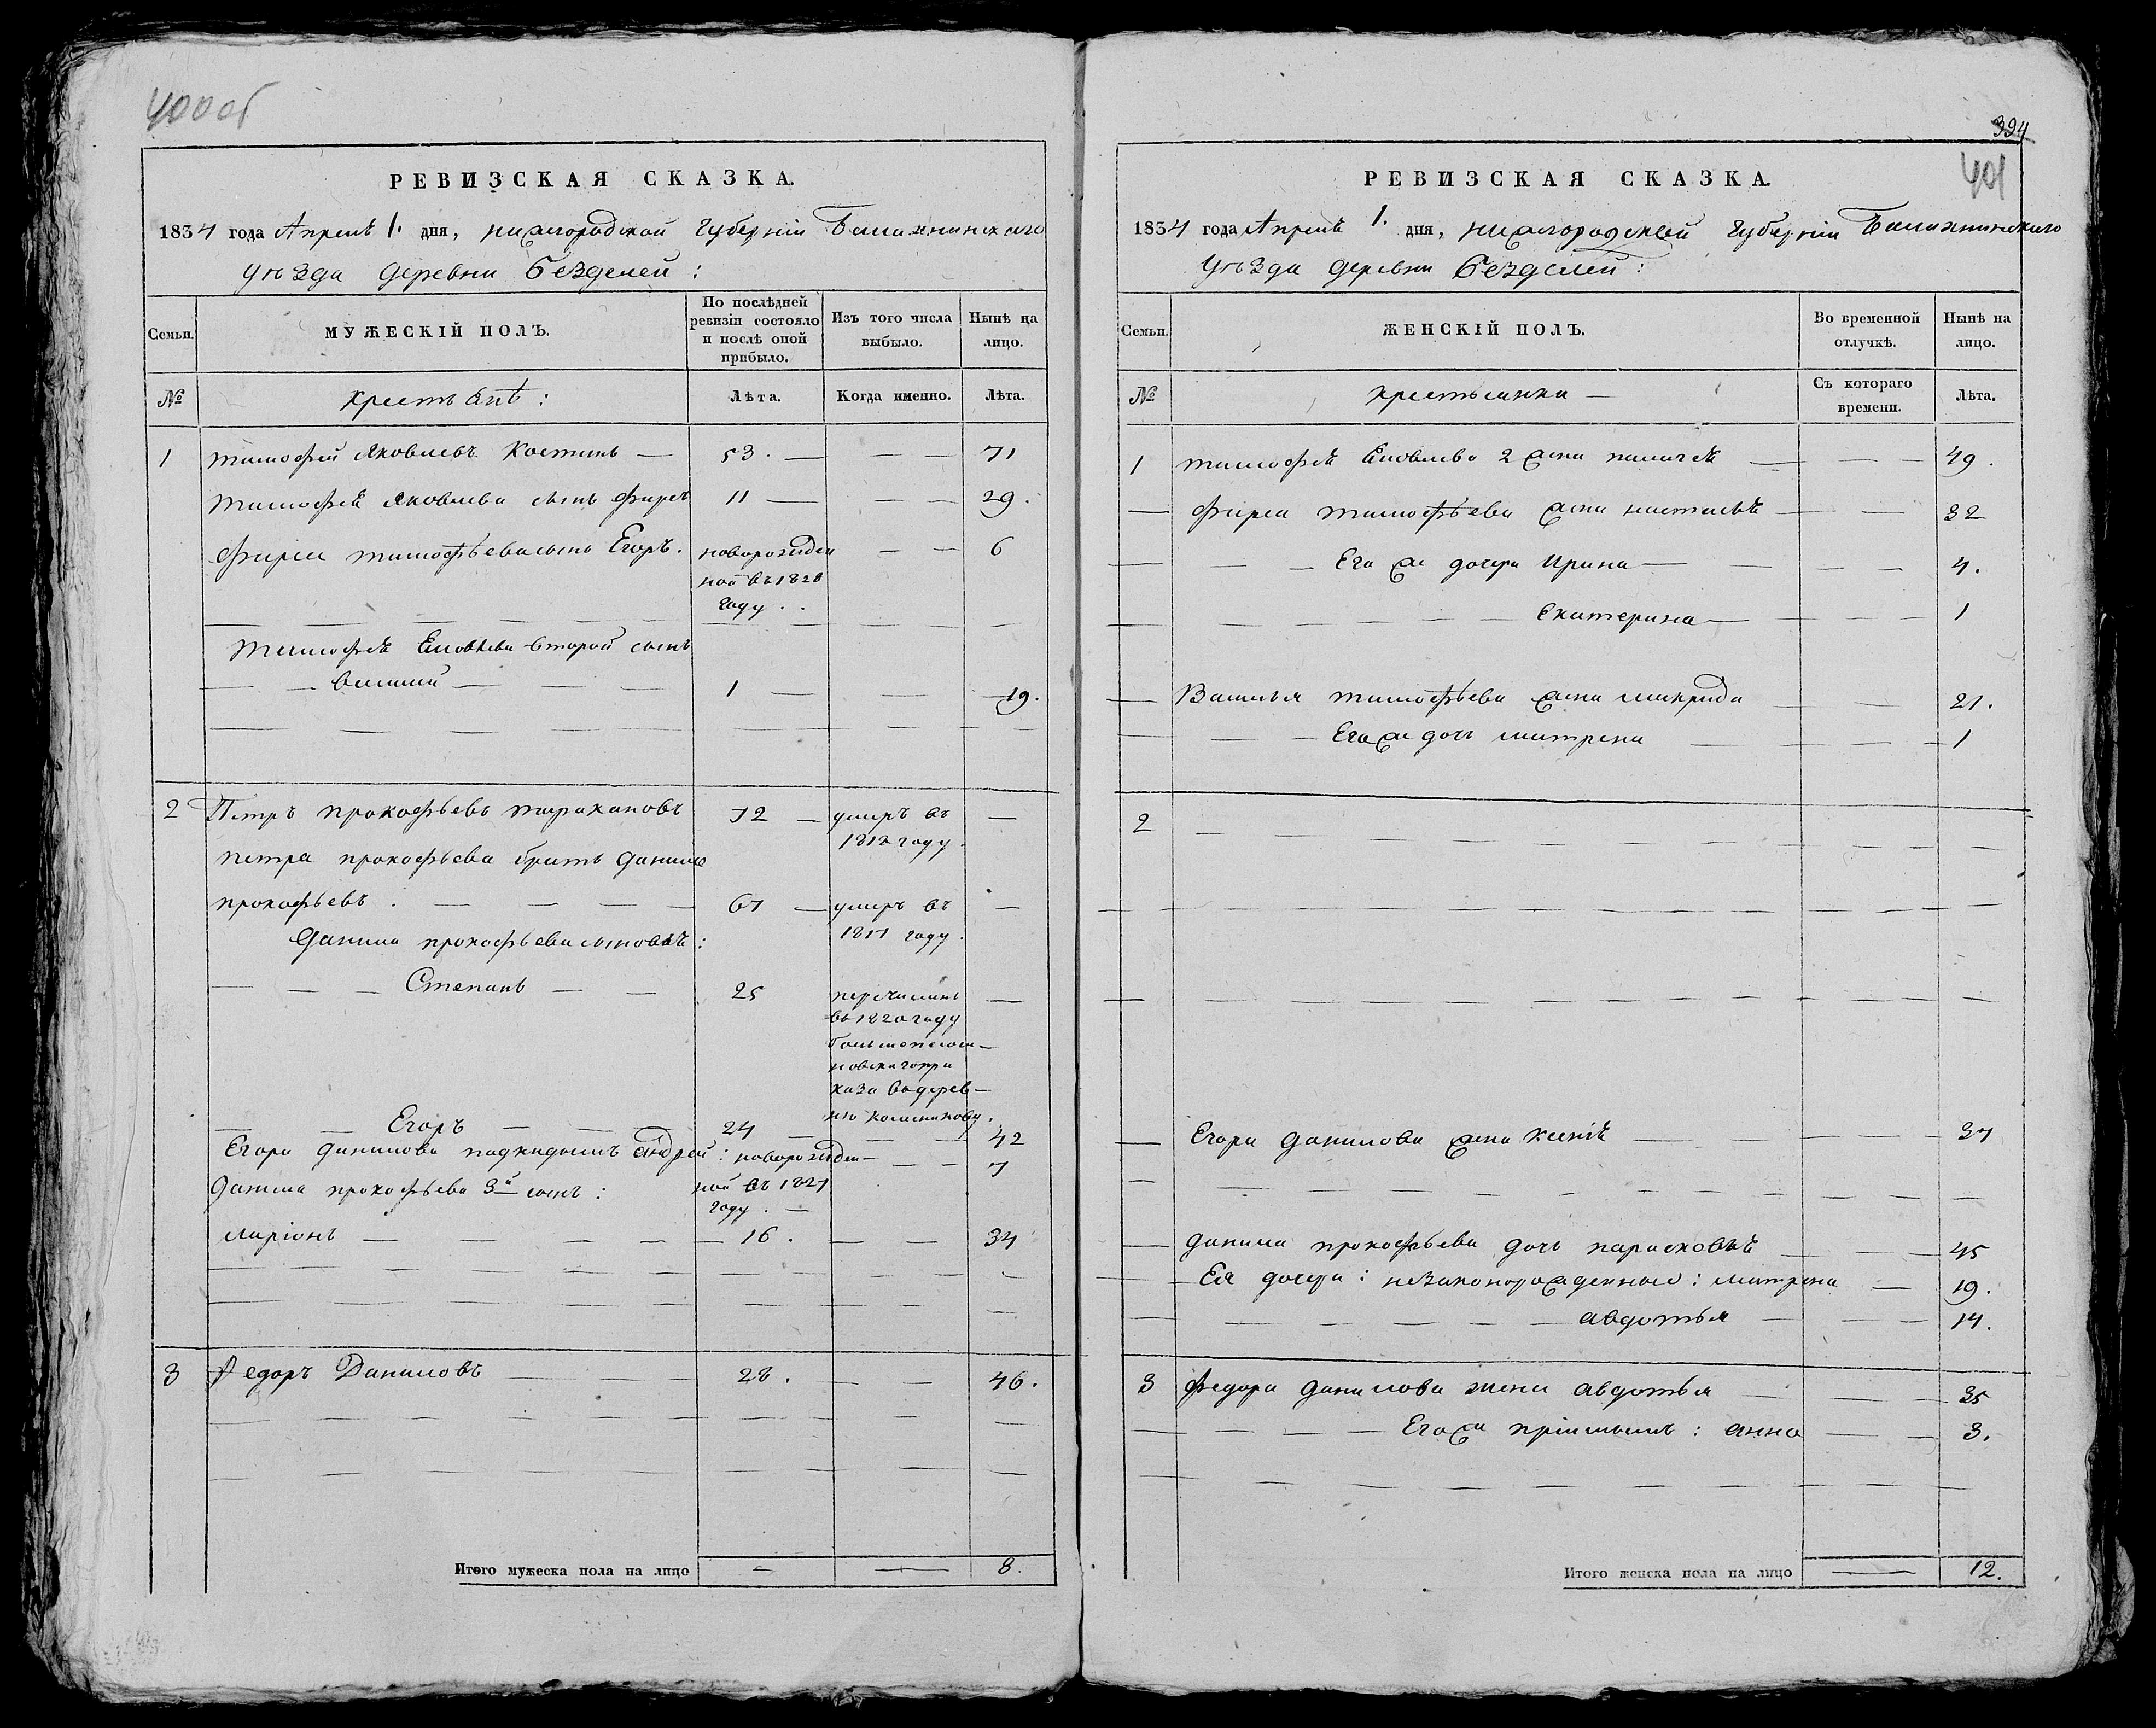 400 об
РЕВИЗСКАЯ СКАЗКА.
1834 года Апреля 1. дня, нижегородской губерніи Балахнинскаго
уѣзда деревни безделей :
Семьи.
МУЖЕСКІЙ ПОЛЪ.
По послѣдней
ревизіи состояло
и послѣ оной
прибыло.
Изъ того числа
выбыло.
Нынѣ на
лицо.
№
крестьянѣ :
Лѣта.
Когда именно.
Лѣта.
1 тимофей яковлевъ Костинъ — 53. — — — 71
тимофея яковлева сынъ фирсъ 11 — — — 29.
фирса тимофѣева сынъ Егоръ. новорожден — — 6
ной въ 1828
году . .
тимофея яковлева второй сынъ
— — василий — — — 1 — — 19.
2 Петръ прокофьевъ таракановъ 72 — умеръ въ —
1818 году.
петра прокофьева братъ данило
прокофьевъ . — — — — 67 — умеръ въ —
1817 году.
данила прокофьева сыновья :
— — — Степанъ — — 25 перечисленъ —
въ 1820 году
новскагопри
каза вдерев—
ню
— — Егоръ — — — 24 — — 42
Егора данилова подкидышъ андрей : новорожден— — — 7
данила прокофьева 3й сынъ : ной въ 1827
году . —
ларіонъ — — — — — 16. — — 34
3 Федоръ Даниловъ — — — 28. — — 46.
Итого мужеска пола на лицо — — 8.
394
401
РЕВИЗСКАЯ СКАЗКА.
1834 года Апреля 1. дня, нижегородской губерніи Балахнинскаго
уѣзда деревни безделей :
Семьи.
ЖЕНСКІЙ ПОЛЪ.
Во временной
отлучкѣ.
Нынѣ на
лицо.
№
крестьянки —
Съ котораго
времени.
Лѣта.
1 тимофея яковлева 2 жена — — — 49.
— фирса тимофѣева жена настасья — — — 32
— — — Его же дочери ирина — — — — 4.
— — — — — — — Екатерина — — — — 1
— Василья тимофѣева жена макрида — — 21.
— — — Его же дочь матрена — — — — 1
2 — — — — — — — — — —
— Егора данилова жена ксенія — — — — 37
— данила прокофьева дочь парасковья — — 45
— — Ея дочери : незаконорожденные : матрена — 19.
— — — — — — — авдотья — — — 14.
3 федора данилова жена авдотья — — — 35
— — — — Его же пріимышъ : анна — — 3.
Итого женска пола на лицо — 12.